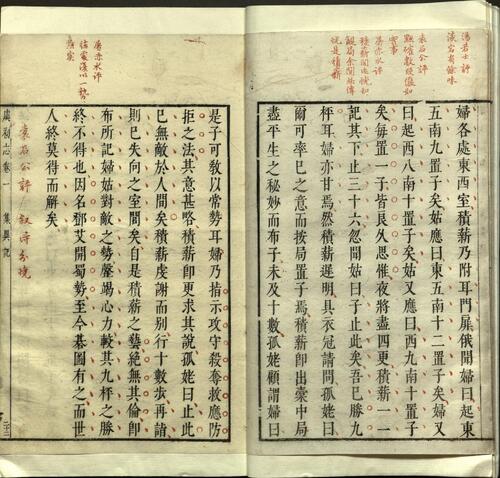 湯若士評
淡宕有餘味
袁石公評
點確數段儼如
實事
屠赤水評
婦各處東西室積薪乃附耳門扉俄聞婦曰起東
五南九置子矣姑應曰東五南十二置子矣婦又
曰起西八南十置子矣姑又應曰西九南十置子
矣每置一子皆良久思惟夜將盡四更積薪一一
記其下止三十六忽聞姑曰子止此矣吾已勝九
枰耳婦亦甘焉然積薪遲明具衣冠請問孤姥曰
爾可率已之意而按局置子焉積薪即出橐中局
盡平生之秘妙而布子未及十數孤姥顧謂婦曰
屠赤水評
是子可敎以常勢耳婦乃指示攻守殺奪救應防
拒之法其意甚略積薪即更求其說孤姥曰止此
已無敵於人間矣積薪虔謝而別行十數步再詣
則已失向之室閭矣自是積薪之藝絶無其倫即
布所記婦姑對敵之勢罄竭心力較其九枰之勝
終不得也因名鄧艾開蜀勢至今棊圖有之而世
人終莫得而解矣
袁石公評
虞初志卷一 集異記